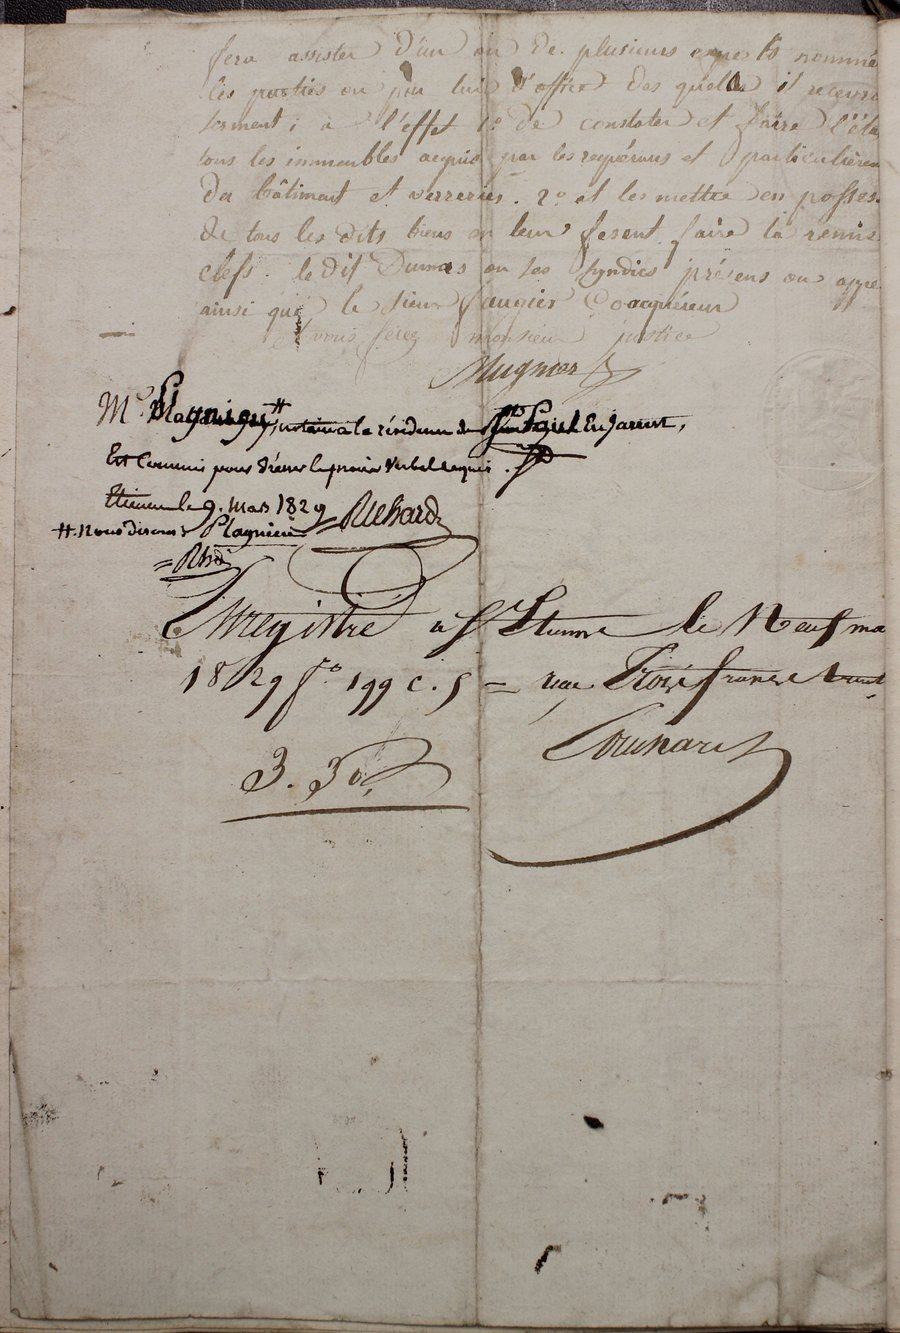 fera assister d'un ou de plusieurs experts nommé
les parties ou par lui d'office des quels il recevra
serment ; à l'effet 1.° de constater et faire l'éta
tous les immeubles acquis par les requérans et particulièrem
du bâtiment et verreries. 2.° et les mettre en posses
de tous les dits biens en leur fesant faire la remis
clefs. le dit Dumas ou ses syndics présens ou appe
ainsi que le sieur faugier Coacquéreur
et vous ferez monsieur justice
Mugnier
M.e Plagnieu # notaire à la résidence de St Paul En Jarrent,
Est Commis pour dresser le procès Verbal requis.
Etienne le 9. Mars 1829 Richard
#. Nous disons Plagnieu
= Rhd
Enregistré à St Etienne le Neuf ma
1829 f.o 199 c. 5 = reçu Trois francs trent
3. 30